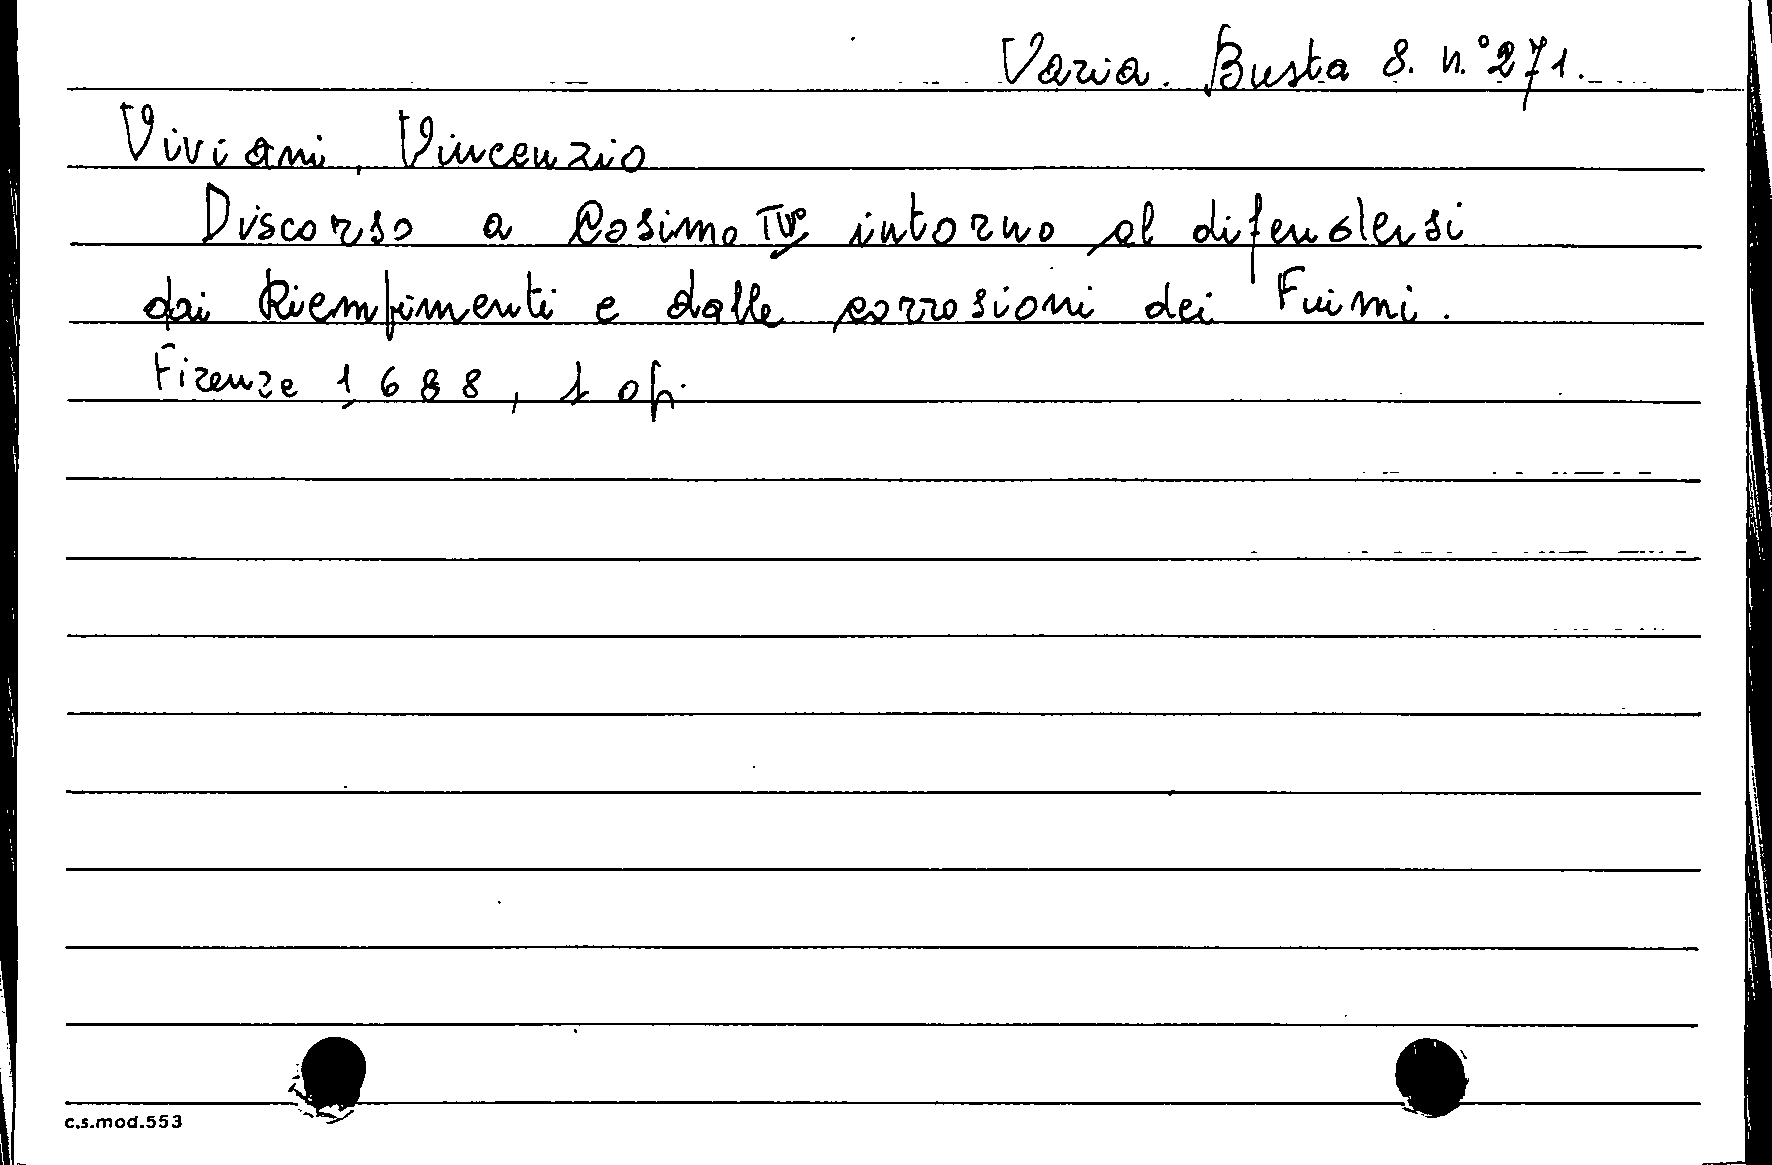 Varia. Busta 8. n.° 271.
Viviani, Vincenzio
Discorso a Cosimo IV° intorno al difendersi
dai Riempimenti e dalle corrosioni dei Fuimi.
Firenze 1688, 1 op.
c.s.mod.553